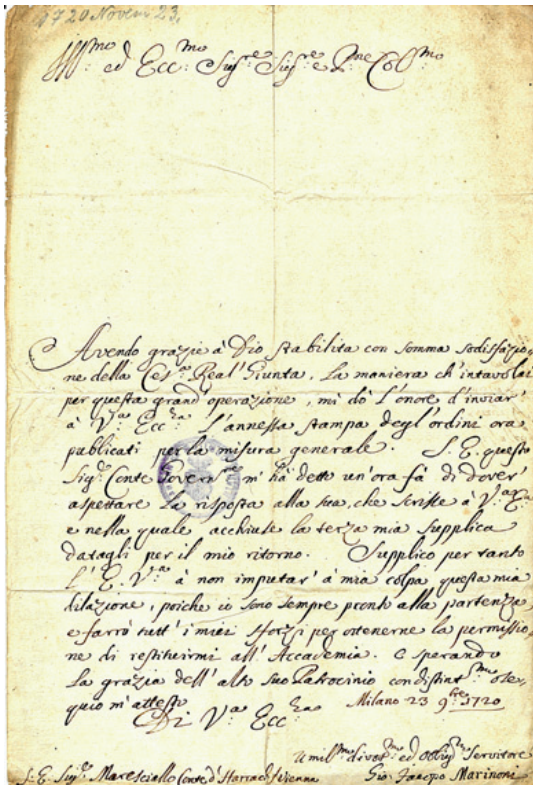 1720 Novem 23.
Ill:mo ed Ecc:mo Sig:re Sig:re e P:ne Col:mo
Avendo grazie à Dio stabilita con somma sodisfazio
ne della Ces:a Real' Giunta, la maniera ch'intavolai
per questa grand'operazione, mi dò l'onore d'inviar'
à V:ra Ecc:za L'annessa stampa degl'ordini ora
publicati per la misura generale. S. E. questo
Sig:r Conte Govern:re m'hà detto un'ora fà di dover'
aspettare la risposta alla sua, che scrisse à V:ra
e nella quale acchiuse la terza mia supplica
datagli per il mio ritorno. Supplico per tanto
l'E. V:ra à non imputar' à mia colpa questa mia
dilazione, poiche io sono sempre pronto alla partenza,
e farrò tutt'i miei sforzi per ottenerne la permissio
ne di restituirmi all'Accademia. e sperando
la grazia dell'alto suo Patrocinio con distint:mo osse-
quio m'attesto
Milano 23 9:bre 1720
Di V:ra Ecc:za
Umil:mo divot:mo ed obblig:mo Servitore
Gio: Jacopo Marinoni
S. E. Sig:r Maresciallo Conte d'Harrach Vienna